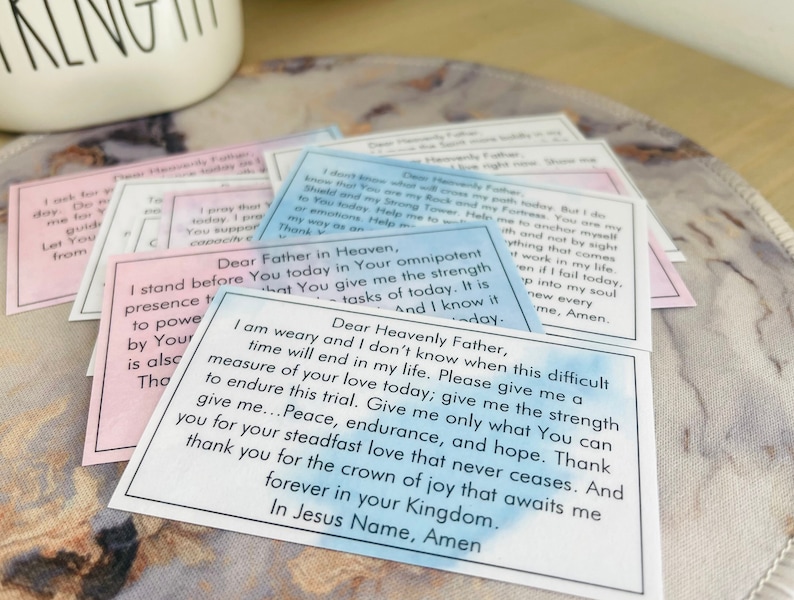 RENGTH
Dear Heavenly Father,
I ask for
day. Do
me for
Let You
from
Dear Heavenly Father,
Dear Heavenly Father,
right now. Show me
I pray that
today. I pra
You suppo
capacity
Dear Heavenly Father,
I don't know what will cross my path today. But I do
know that You are my Rock and my Fortress. You are my
Shield and my Strong Tower. Help me to anchor myself
to You today. Help me to
and not by sight
or emotions. Help me
anything that comes
my way as an
work in my life.
Thank
if I fail today,
into my soul
new every
Amen.
Dear Father in Heaven,
I stand before You today in Your omnipotent
presence
that You give me the strength
to powe
tasks of today. It is
by Your
And I know it
is also
today.
Tha
Dear Heavenly Father,
I am weary and I don't know when this difficult
time will end in my life. Please give me a
measure of your love today; give me the strength
to endure this trial. Give me only what You can
give me...Peace, endurance, and hope. Thank
you for your steadfast love that never ceases. And
thank you for the crown of joy that awaits me
forever in your Kingdom.
In Jesus Name, Amen